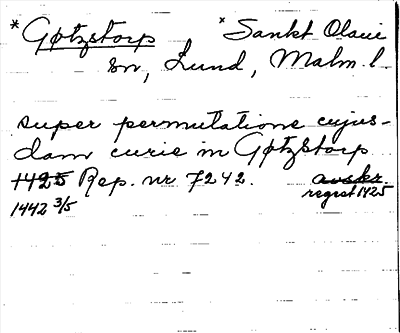 *Gøtzstorp *Sankt Olavi
sn, Lund, Malm. l.
super permutatione cujus-
dam curie in Gøtzstorp
1425 Rep. nr 7242. avskr.
1442 3/5 regest 1425